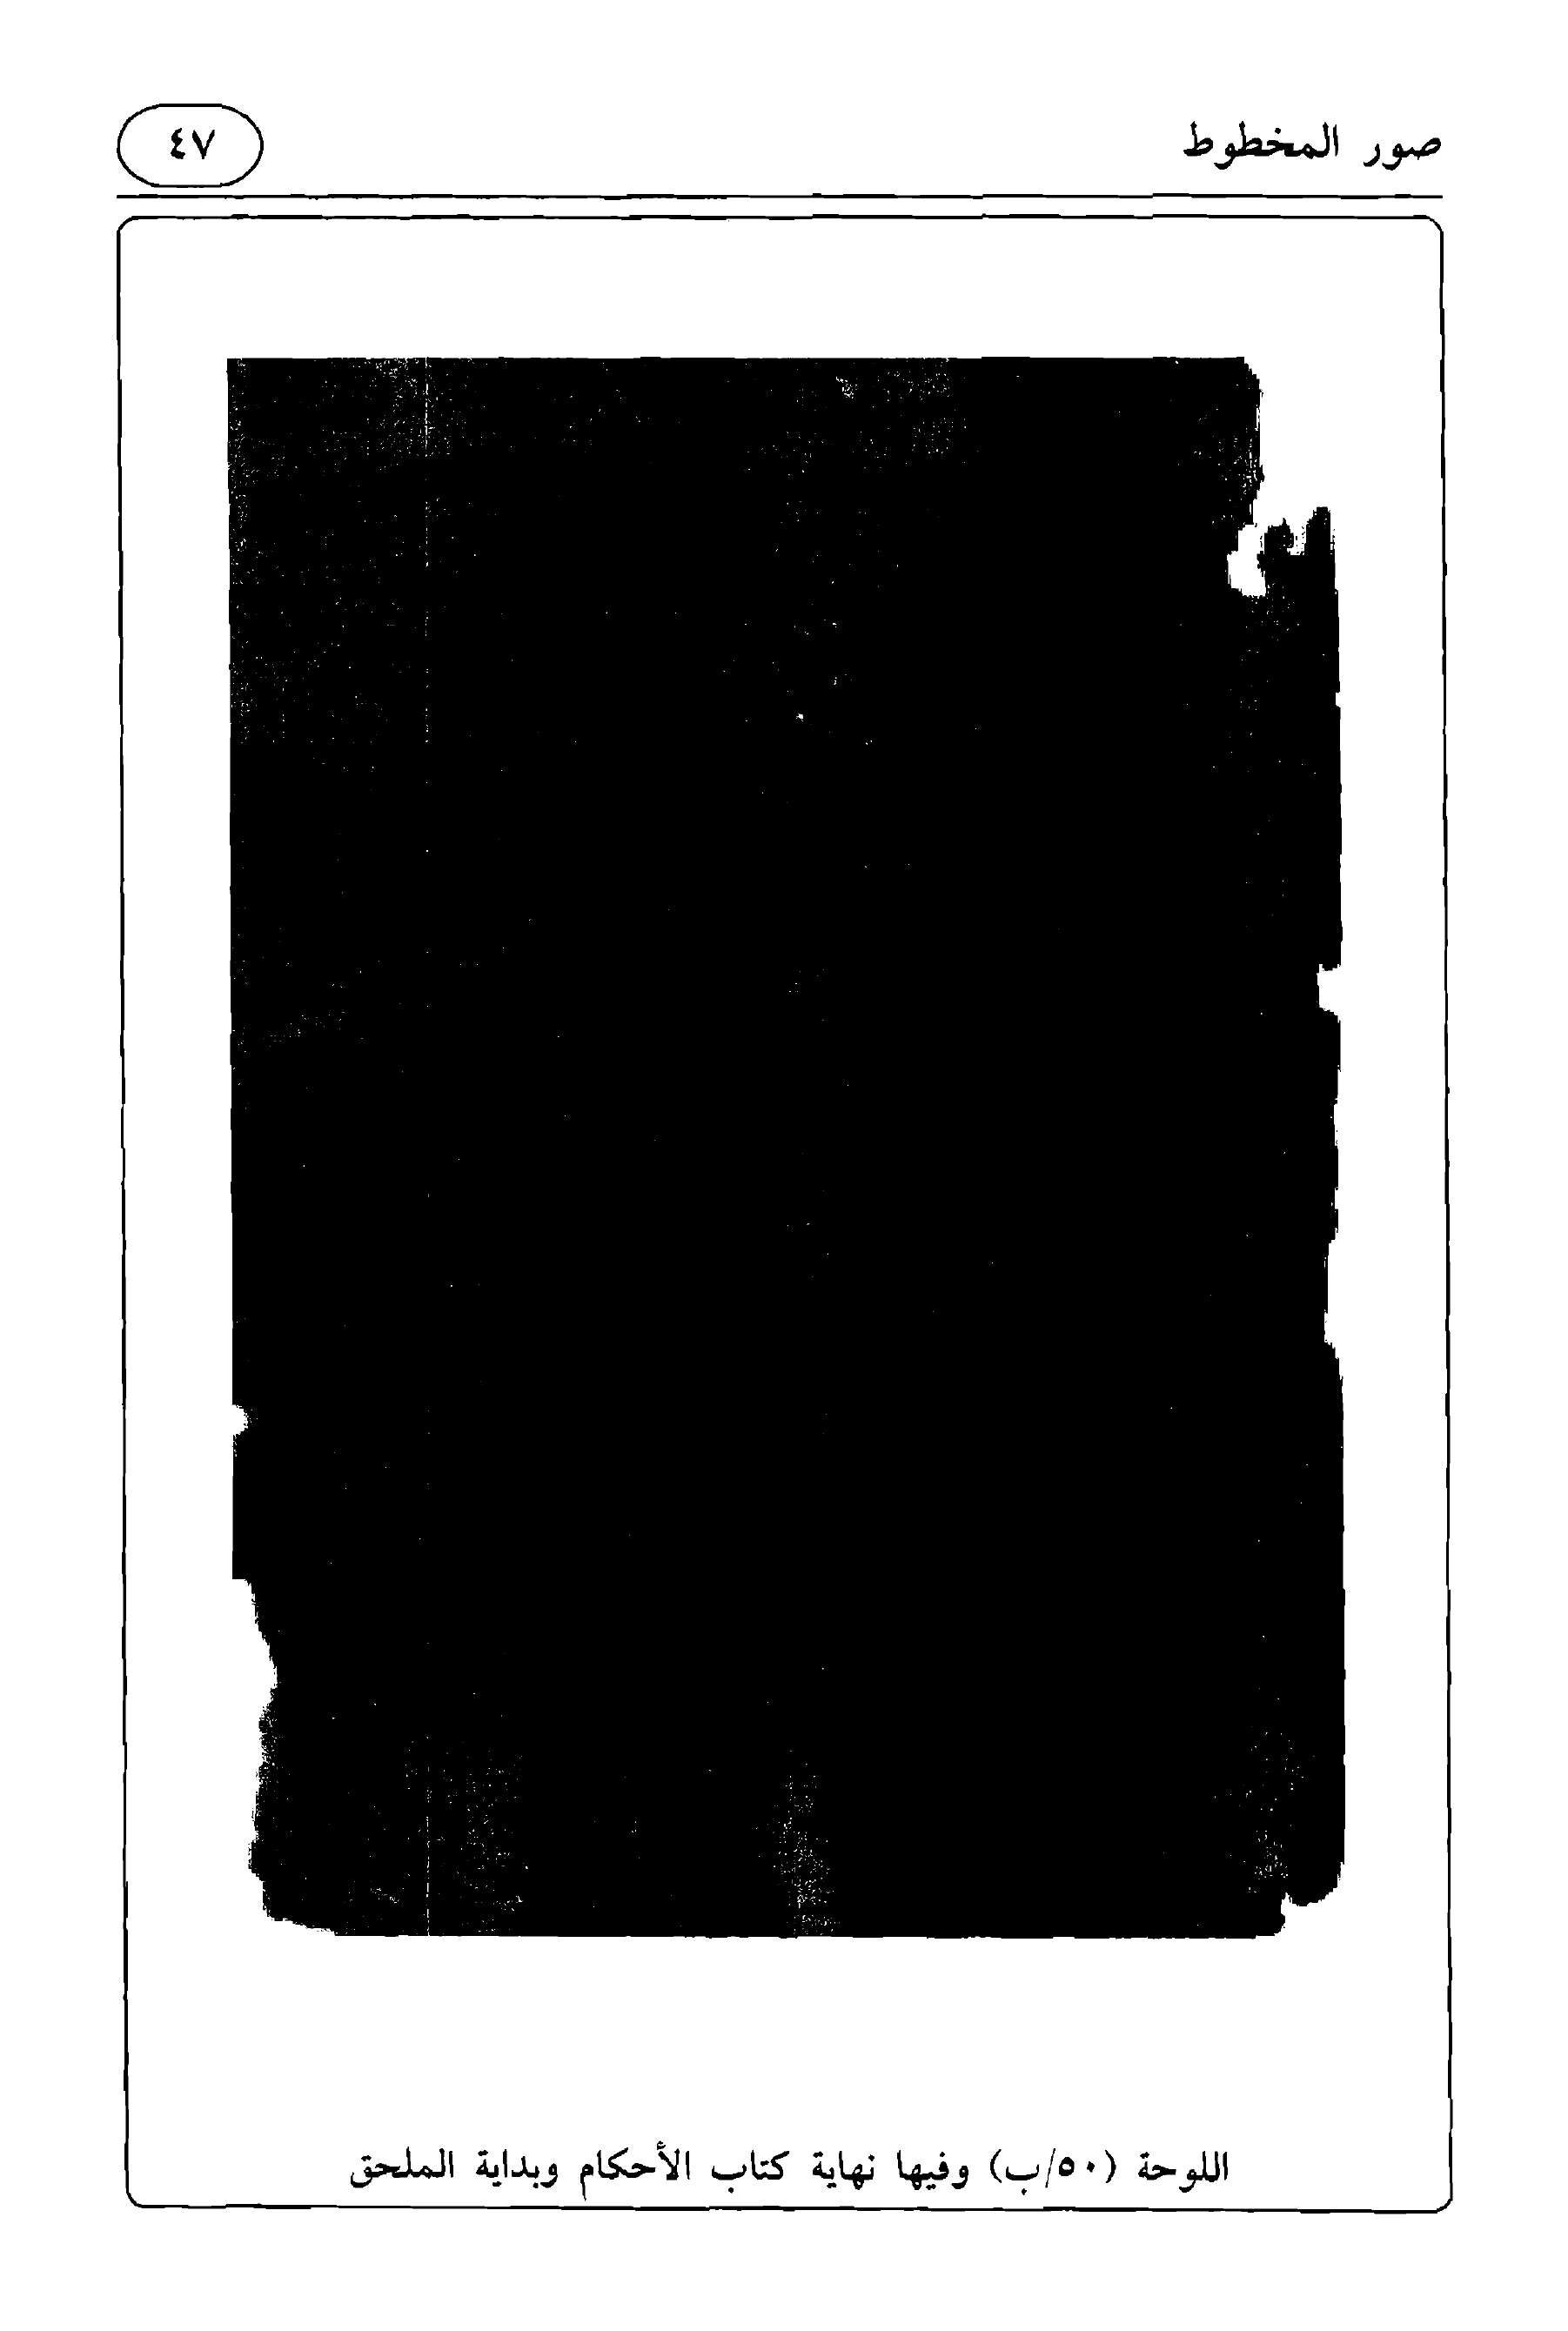 صور المخطوط
٤٧
اللوحة (٥٠/ب) وفيها نهاية كتاب الأحكام وبداية الملحق